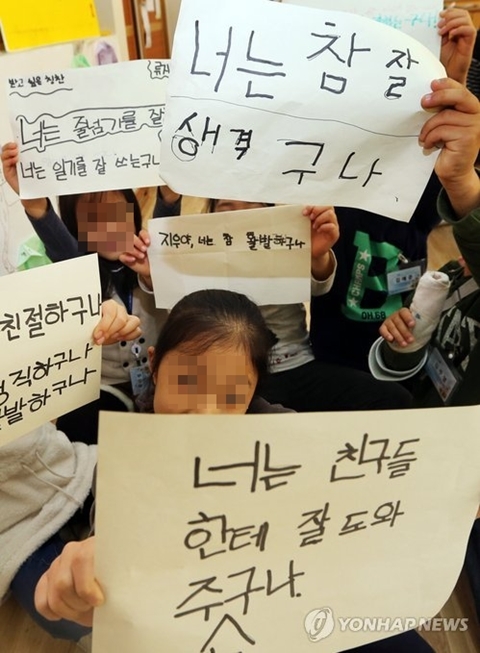 너는 참 잘
생격 구나.
받고 싶은 칭찬
너는 줄넘기를 잘
너는 일기를 잘 쓰는구나
지수야, 너는 참 활발하구나
친절하구나
직하구나
발하구나
DH.68
너는 친구들
한테 잘 도와
주구나.
YONHAPNEWS